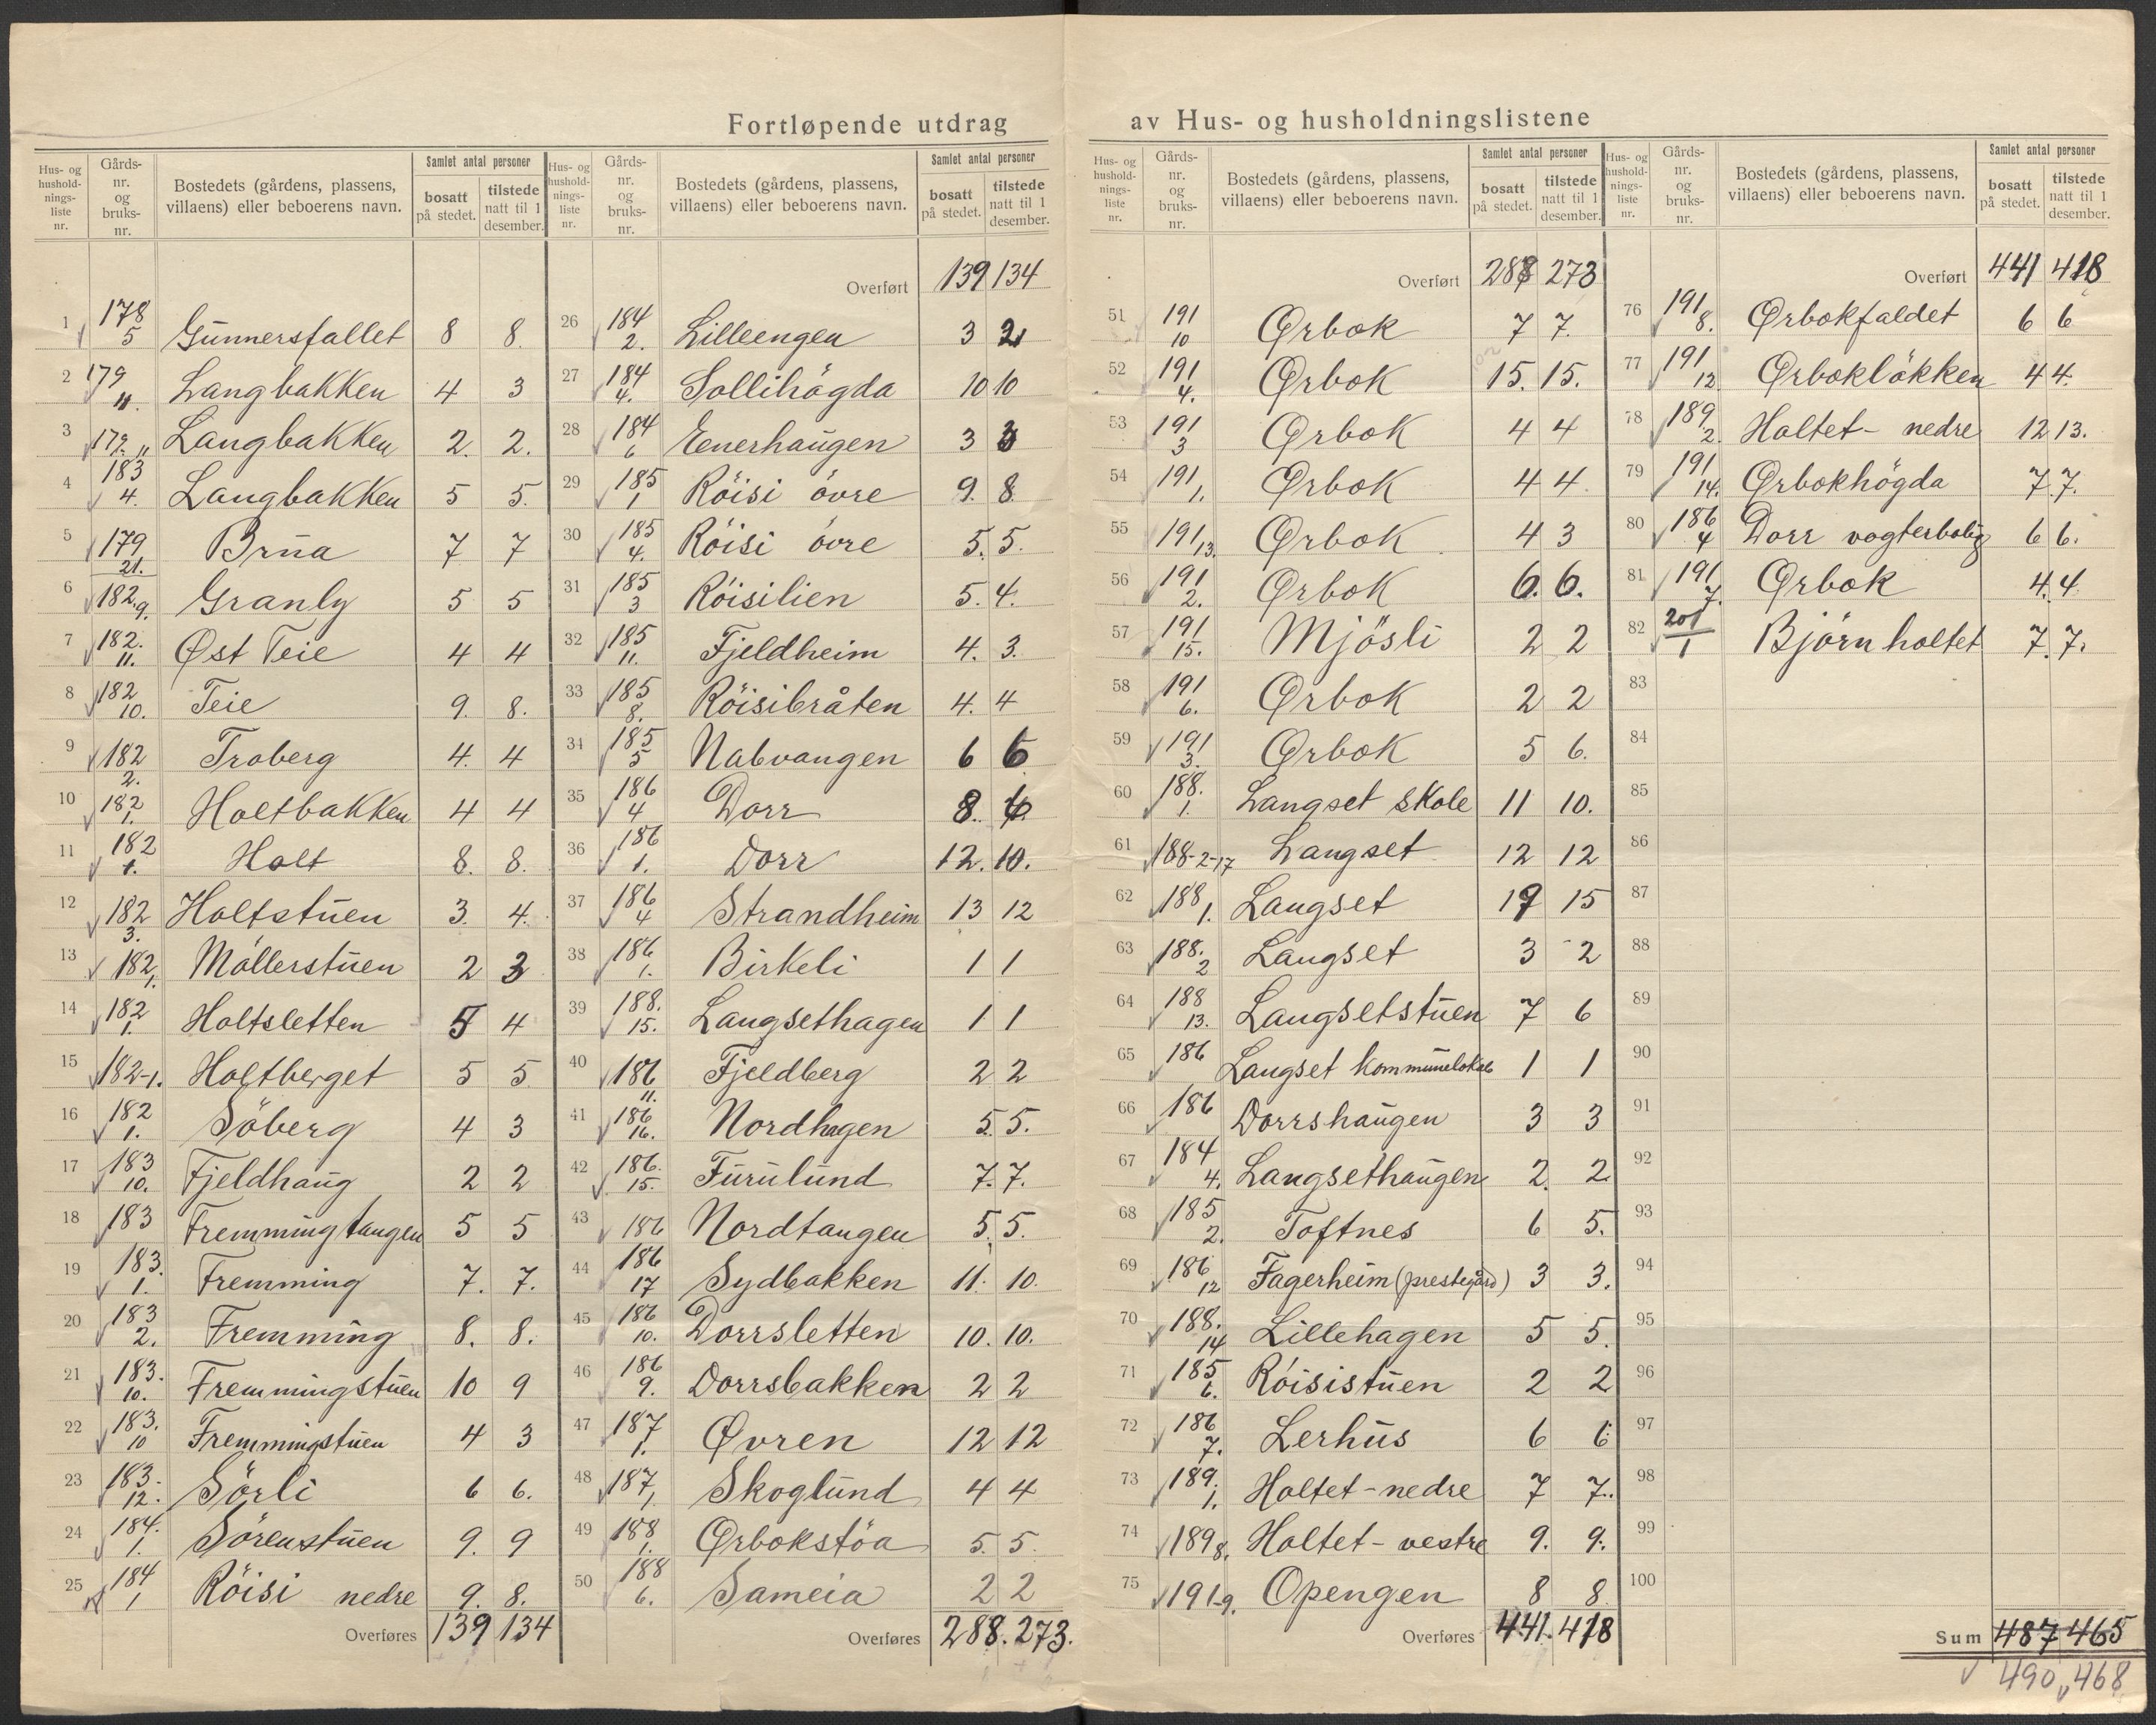 Fortløpende utdrag av Hus- og husholdningslistene
Hus- og husholdningsliste nr. | Gårds-nr. og bruks-nr. | Bostedets (gårdens, plassens, villaens) eller beboerens navn. | Samlet antal personer: bosatt på stedet. | tilstede natt til 1 desember.
1 178 5 Gunnersfallet 8 8.
2 179 11. Langbakken 4 3
3 179. 11 Langbakken 2. 2.
4 183 4. Langbakken 5 5.
5 179 21. Brua 7 7
6 182. 9. Granly 5 5
7 182. 11. Øst Teie 4 4
8 182 10. Teie 9. 8.
9 182 2. Troberg 4. 4
10 182 1. Holtbakken 4 4
11 182 1. Holt 8. 8.
12 182 3. Holtstuen 3. 4.
13 182, 1. Möllerstuen 2 3
14 182 1. Holtsletten 5 4
15 182-1. Holtberget 5 5
16 182 1. Söberg 4 3
17 183 10. Fjeldhaug 2 2
18 183 Fremmingtangen 5 5
19 183. 1. Fremming 7. 7.
20 183 2. Fremming 8. 8.
21 183. 10. Fremmingstuen 10 9
22 183. 10 Fremmingstuen 4 3
23 183. 12. Sörli 6 6.
24 184. 1. Sörenstuen 9. 9
25 184 1 Röisi nedre 9. 8.
Overføres 139 134
Hus- og husholdningsliste nr. | Gårds-nr. og bruks-nr. | Bostedets (gårdens, plassens, villaens) eller beboerens navn. | Samlet antal personer: bosatt på stedet. | tilstede natt til 1 desember.
Overført 139 134
26 184 2. Lilleengen 3 2
27 184 4. Sollihögda 10 10
28 184 6 Eenerhaugen 3 3
29 185 1 Röisi övre 9. 8
30 185 4. Röisi övre 5. 5.
31 185 3 Röisilien 5. 4.
32 185 11. Fjeldheim 4. 3.
33 185 8. Röisibråten 4. 4
34 185 5 Nabvangen 6 6
35 186 4 Dorr 8.
36 186 1. Dorr 12. 10.
37 186 4 Strandheim 13 12
38 186 1. Birkeli 1 1
39 188. 15. Langsethagen 1 1
40 186 11. Fjeldberg 2 2
41 186 16. Nordhagen 5. 5.
42 186. 15. Furulund 7. 7.
43 186 Nordtangen 5. 5.
44 186 17 Sydbakken 11. 10.
45 186 10. Dorrsletten 10. 10.
46 186 9. Dorrsbakken 2 2
47 187 1. Øvren 12 12
48 187, 1 Skoglund 4 4
49 188 1. Ørbokstöa 5. 5.
50 188 6. Sameia 2 2
Overføres 288. 273.
Hus- og husholdningsliste nr. | Gårds-nr. og bruks-nr. | Bostedets (gårdens, plassens, villaens) eller beboerens navn. | Samlet antal personer: bosatt på stedet. | tilstede natt til 1 desember.
Overført 288 273
51 191 10 Ørbok 7 7.
52 191 4. Ørbok 15. 15.
53 191 3 Ørbok 4 4
54 191 1. Ørbok 4 4
55 191 13. Ørbok 4 3
56 191 2. Ørbok 6. 6.
57 191 15. Mjösli 2 2
58 191 6. Ørbok 2 2
59 191 3. Ørbok 5 6.
60 188. 1. Langset skole 11 10.
61 188-2-17 Langset 12 12
62 188 1. Langset 15
63 188. 2 Langset 3 2
64 188 13. Langsetstuen 7 6
65 186 Langset kommunelokale 1 1
66 186 Dorrshaugen 3 3
67 184 4. Langsethaugen 2. 2
68 185 2. Toftnes 6 5.
69 186 12 Fagerheim (prestegård) 3 3.
70 188. 14 Lillehagen 5 5.
71 185 6. Röisistuen 2 2
72 186 7. Lerhus 6 6
73 189. 1. Holtet-nedre 7 7.
74 189 8. Holtet-vestre 9. 9.
75 191-9. Opengen 8 8
Overføres 441. 418
Hus- og husholdningsliste nr. | Gårds-nr. og bruks-nr. | Bostedets (gårdens, plassens, villaens) eller beboerens navn. | Samlet antal personer: bosatt på stedet. | tilstede natt til 1 desember.
Overført 441 418
76 191 8. Ørbokfaldet 6 6
77 191 12 Ørboklökken 4 4.
78 189 2. Holtet- nedre 12 13.
79 191 14. Ørbokhögda 7. 7.
80 186 4 Dorr vogterbolig 6 6.
81 191 7. Ørbok 4. 4
82 201 1 Björnholtet 7. 7.
83
84
85
86
87
88
89
90
91
92
93
94
95
96
97
98
99
100
Sum 487 465
490 468